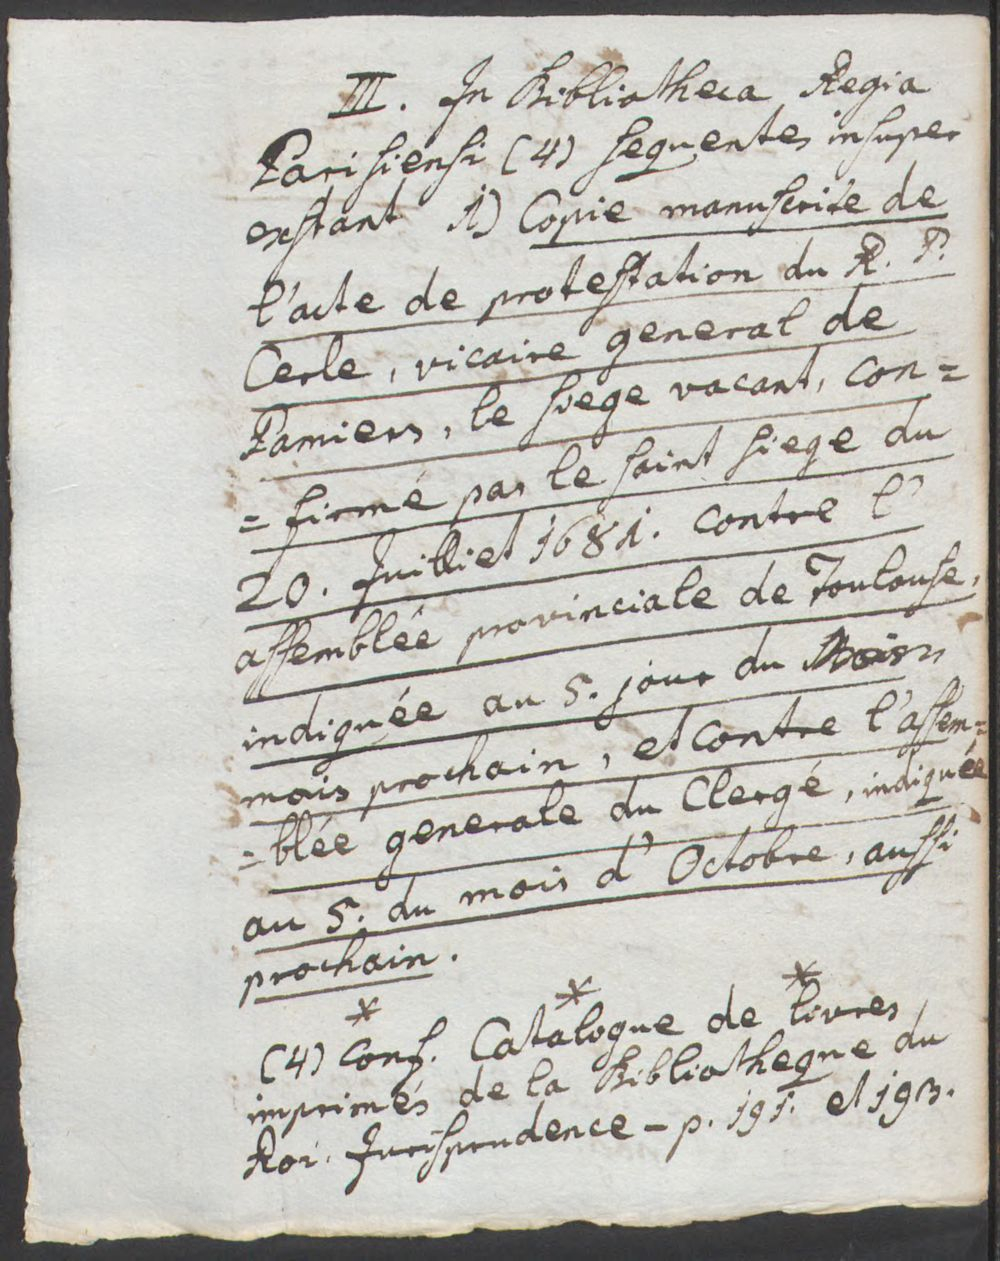 III. In Bibliotheca Regia
Parisiensi (4) sequentes insuper
exstant 1) Copie manuscrite de
l'acte de protestation du R. P.
Cerle, vicaire general de
Pamiers, le siege vacant, con=
= firmé par le saint siege du
20. Juilliet 1681. contre l'
assemblée provinciale de Toulouse,
indiquée au 5. jour du
mois prochain, et contre l'assem=
= blée generale du Clergé, indiquée
au 5. du mois d'Octobre, aussi
prochain.
* * *
(4) Conf. Catalogue de livres
imprimés de la Bibliotheque du
Roi. Jurisprudence – p. 191. et 193.